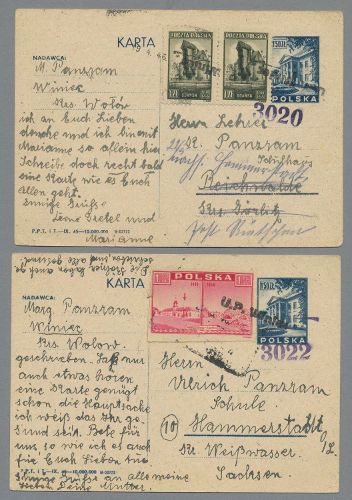 KARTA
NADAWCA:
M. Panzram
Winiec
Krs. Wołów
ich an Euch Lieben
denke und ich bin mit
Marianne so allein hier
Schreibe doch recht bald
eine Karte wie es Euch
Allen geht.
Innige Grüße
Gretel und
Marianne
P.P.T. i T. - IX. 45 - 10.000.000
POCZTA POLSKA
GDAŃSK
POCZTA POLSKA
GDAŃSK
1.50 ZŁ
POLSKA
3020
Herrn Lehrer
Panzram
Reichwalde
Krs. Görlitz
Post Rietschen
KARTA
NADAWCA:
Marg. Panzram
Winiec
Krs. Wołow
geschrieben. Laß nur
auch etwas hören
eine Karte genügt
schon die Hauptsache
ich weiß du Ihr ge-
sund seid. Bete für
uns so wie ich es auch
für Euch Lieben tue
Innige Grüße an alle meine
Lieben Deine Mutter.
P.P.T. i T. - IX. 45 - 10.000.000
POLSKA
1.50 ZŁ
POLSKA
3022
Herrn
Ulrich Panzram
Schule
10 Hammerstadt
Kr. Weißwasser
Sachsen